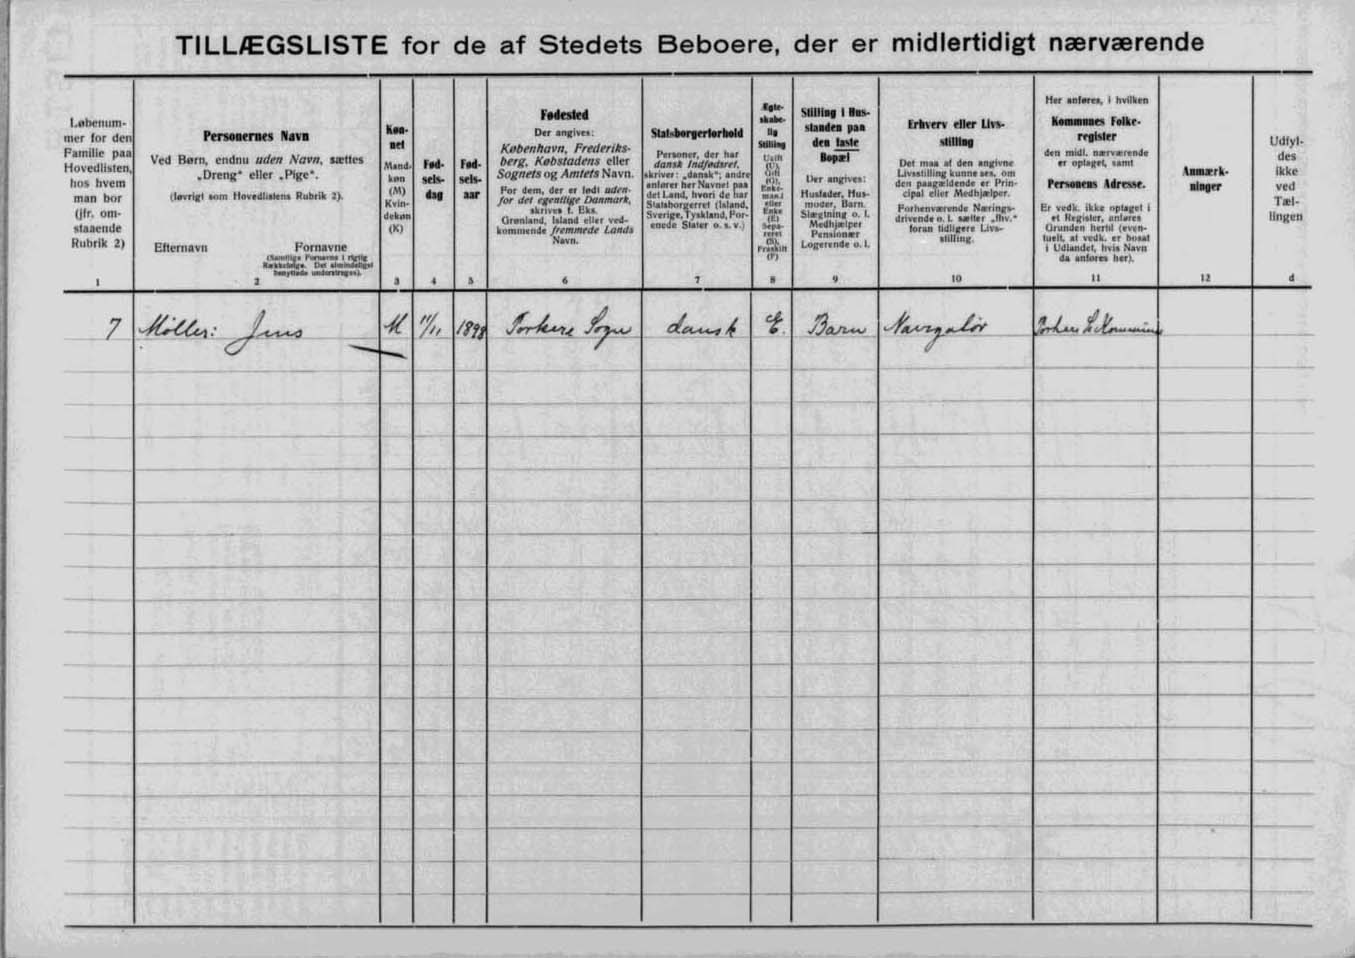 TILLÆGSLISTE for de af Stedets Beboere, der er midlertidigt nærværende
Løbenum-
mer for den
Familie paa
Hovedlisten,
hos hvem
man bor
(jfr. om-
staaende
Rubrik 2)
1
Personernes Navn
Ved Børn, endnu uden Navn, sættes
„Dreng“ eller „Pige“.
(Iøvrigt som Hovedlistens Rubrik 2).
Efternavn Fornavne
(Samtlige Fornavne i rigtig
Rækkefølge. Det almindeligst
benyttede understreges).
2
Køn-
net
Mand-
køn
(M)
Kvin-
dekøn
(K)
3
Fød-
sels-
dag
4
Fød-
sels-
aar
5
Fødested
Der angives:
København, Frederiks-
berg, Købstadens eller
Sognets og Amtets Navn.
For dem, der er født uden-
for det egentlige Danmark,
skrives f. Eks.
Grønland, Island eller ved-
kommende fremmede Lands
Navn.
6
Statsborgerforhold
Personer, der har
dansk Indfødsret,
skriver: „dansk“; andre
anfører her Navnet paa
det Land, hvori de har
Statsborgerret (Island,
Sverige, Tyskland, For-
enede Stater o. s. v.)
7
Ægte-
skabe-
lig
Stilling
Ugift
(U),
Gift
(G),
Enke-
mand
eller
Enke
(E)
Sepa-
reret
(S),
Fraskilt
(F)
8
Stilling i Hus-
standen paa
den faste
Bopæl
Der angives:
Husfader, Hus-
moder, Barn,
Slægtning o. l.
Medhjælper
Pensionær
Logerende o. l.
9
Erhverv eller Livs-
stilling
Det maa af den angivne
Livsstilling kunne ses, om
den paagældende er Prin-
cipal eller Medhjælper.
Forhenværende Nærings-
drivende o. l. sætter „fhv.“
foran tidligere Livs-
stilling.
10
Her anføres, i hvilken
Kommunes Folke-
register
den midl. nærværende
er optaget, samt
Personens Adresse.
Er vedk. ikke optaget i
et Register, anføres
Grunden hertil (even-
tuelt, at vedk. er bosat
i Udlandet, hvis Navn
da anføres her).
11
Anmærk-
ninger
12
Udfyl-
des
ikke
ved
Tæl-
lingen
d
7 Møller: Jens M 11/11 1898 Porkere Sogn dansk E. Barn Navigatør Porkere Kommune